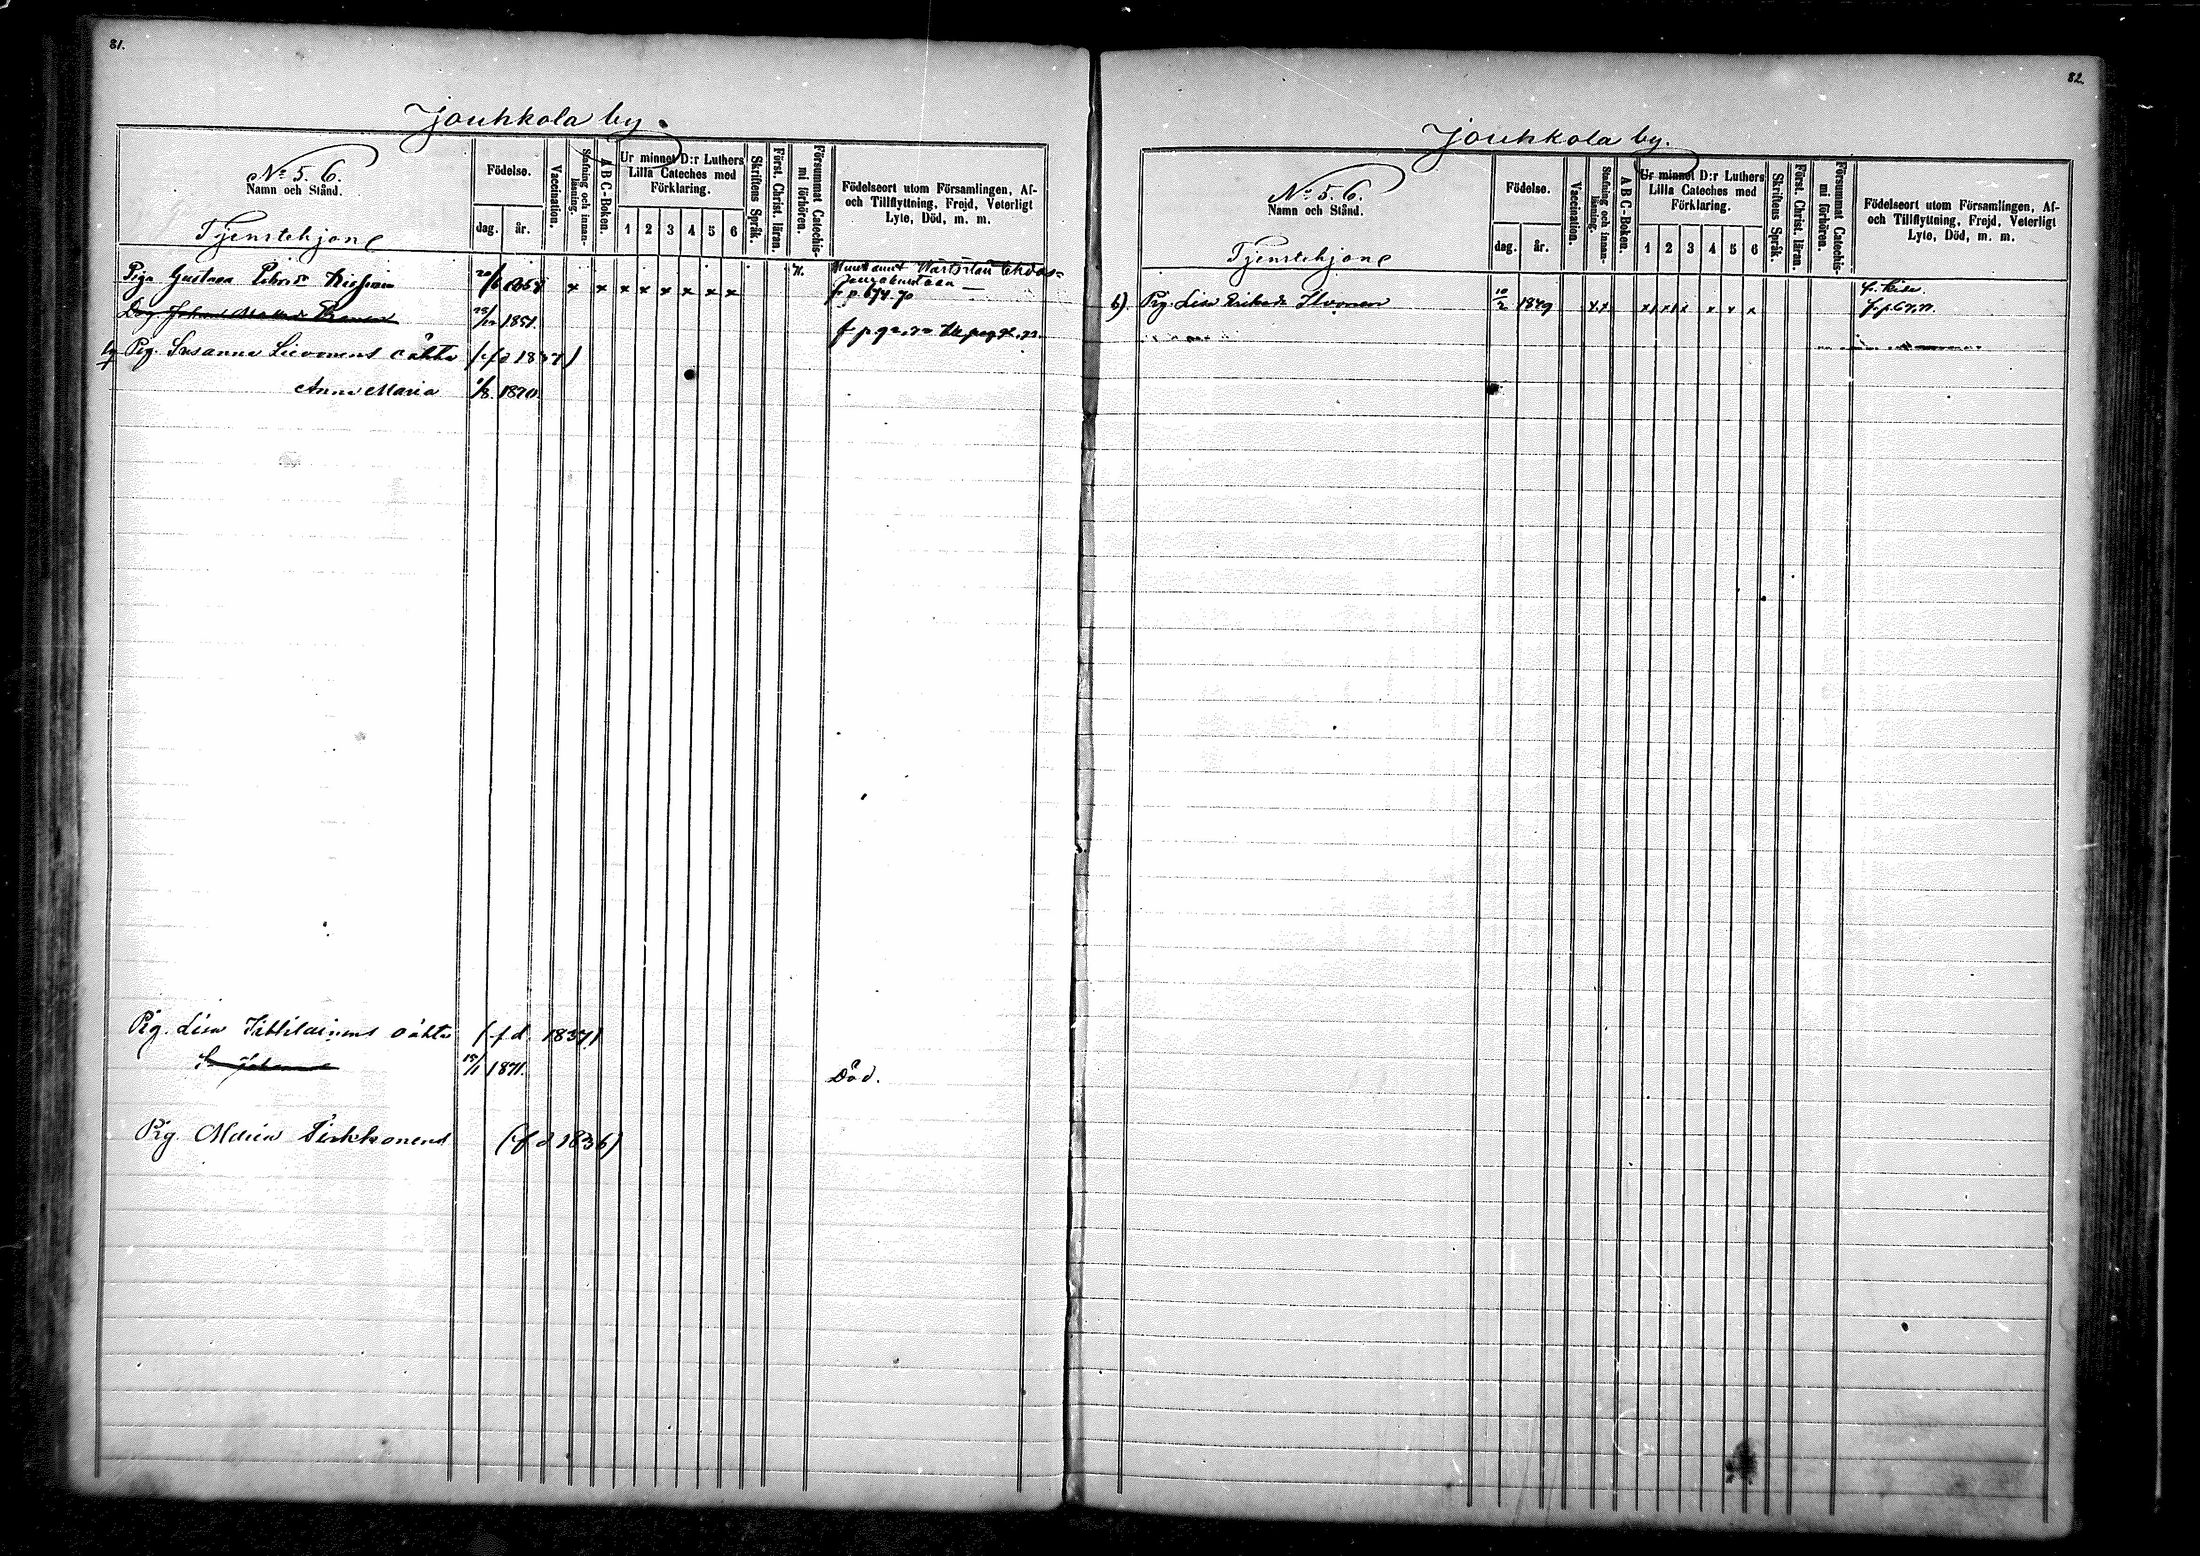 81.
Jouhkola by.
No 5. 6.
Namn och Stånd.
Födelse.
dag. år.
Vaccination.
Stafning och innanläsning.
A B C-Boken.
Ur minnet D:r Luthers
Lilla Cateches med
Förklaring.
1 2 3 4 5 6
Skriftens Språk.
Först. Christ. läran.
Försummat Catechismi förhören.
Födelseort utom Församlingen, Af-
och Tillflyttning, Frejd, Veterligt
Lyte, Död, m. m.
Tjenstehjon
Piga Gustava x x x x x x x x
1851.
Pig. Susanna Lievonens oäkta (f d 1837)
Anna Maria 1/8. 1870.
Pig. Lisa oäkta (f d. 1837)
15/1 1871. Död.
Pig. Maria Tirkkonens (f d 1836)
82.
Jouhkola by.
No 5. 6.
Namn och Stånd.
Födelse.
dag. år.
Vaccination.
Stafning och innanläsning.
A B C-Boken.
Ur minnet D:r Luthers
Lilla Cateches med
Förklaring.
1 2 3 4 5 6
Skriftens Språk.
Först. Christ. läran.
Försummat Catechismi förhören.
Födelseort utom Församlingen, Af-
och Tillflyttning, Frejd, Veterligt
Lyte, Död, m. m.
Tjenstehjon
6). Pig. Lisa Ilvonen 10/2 1849